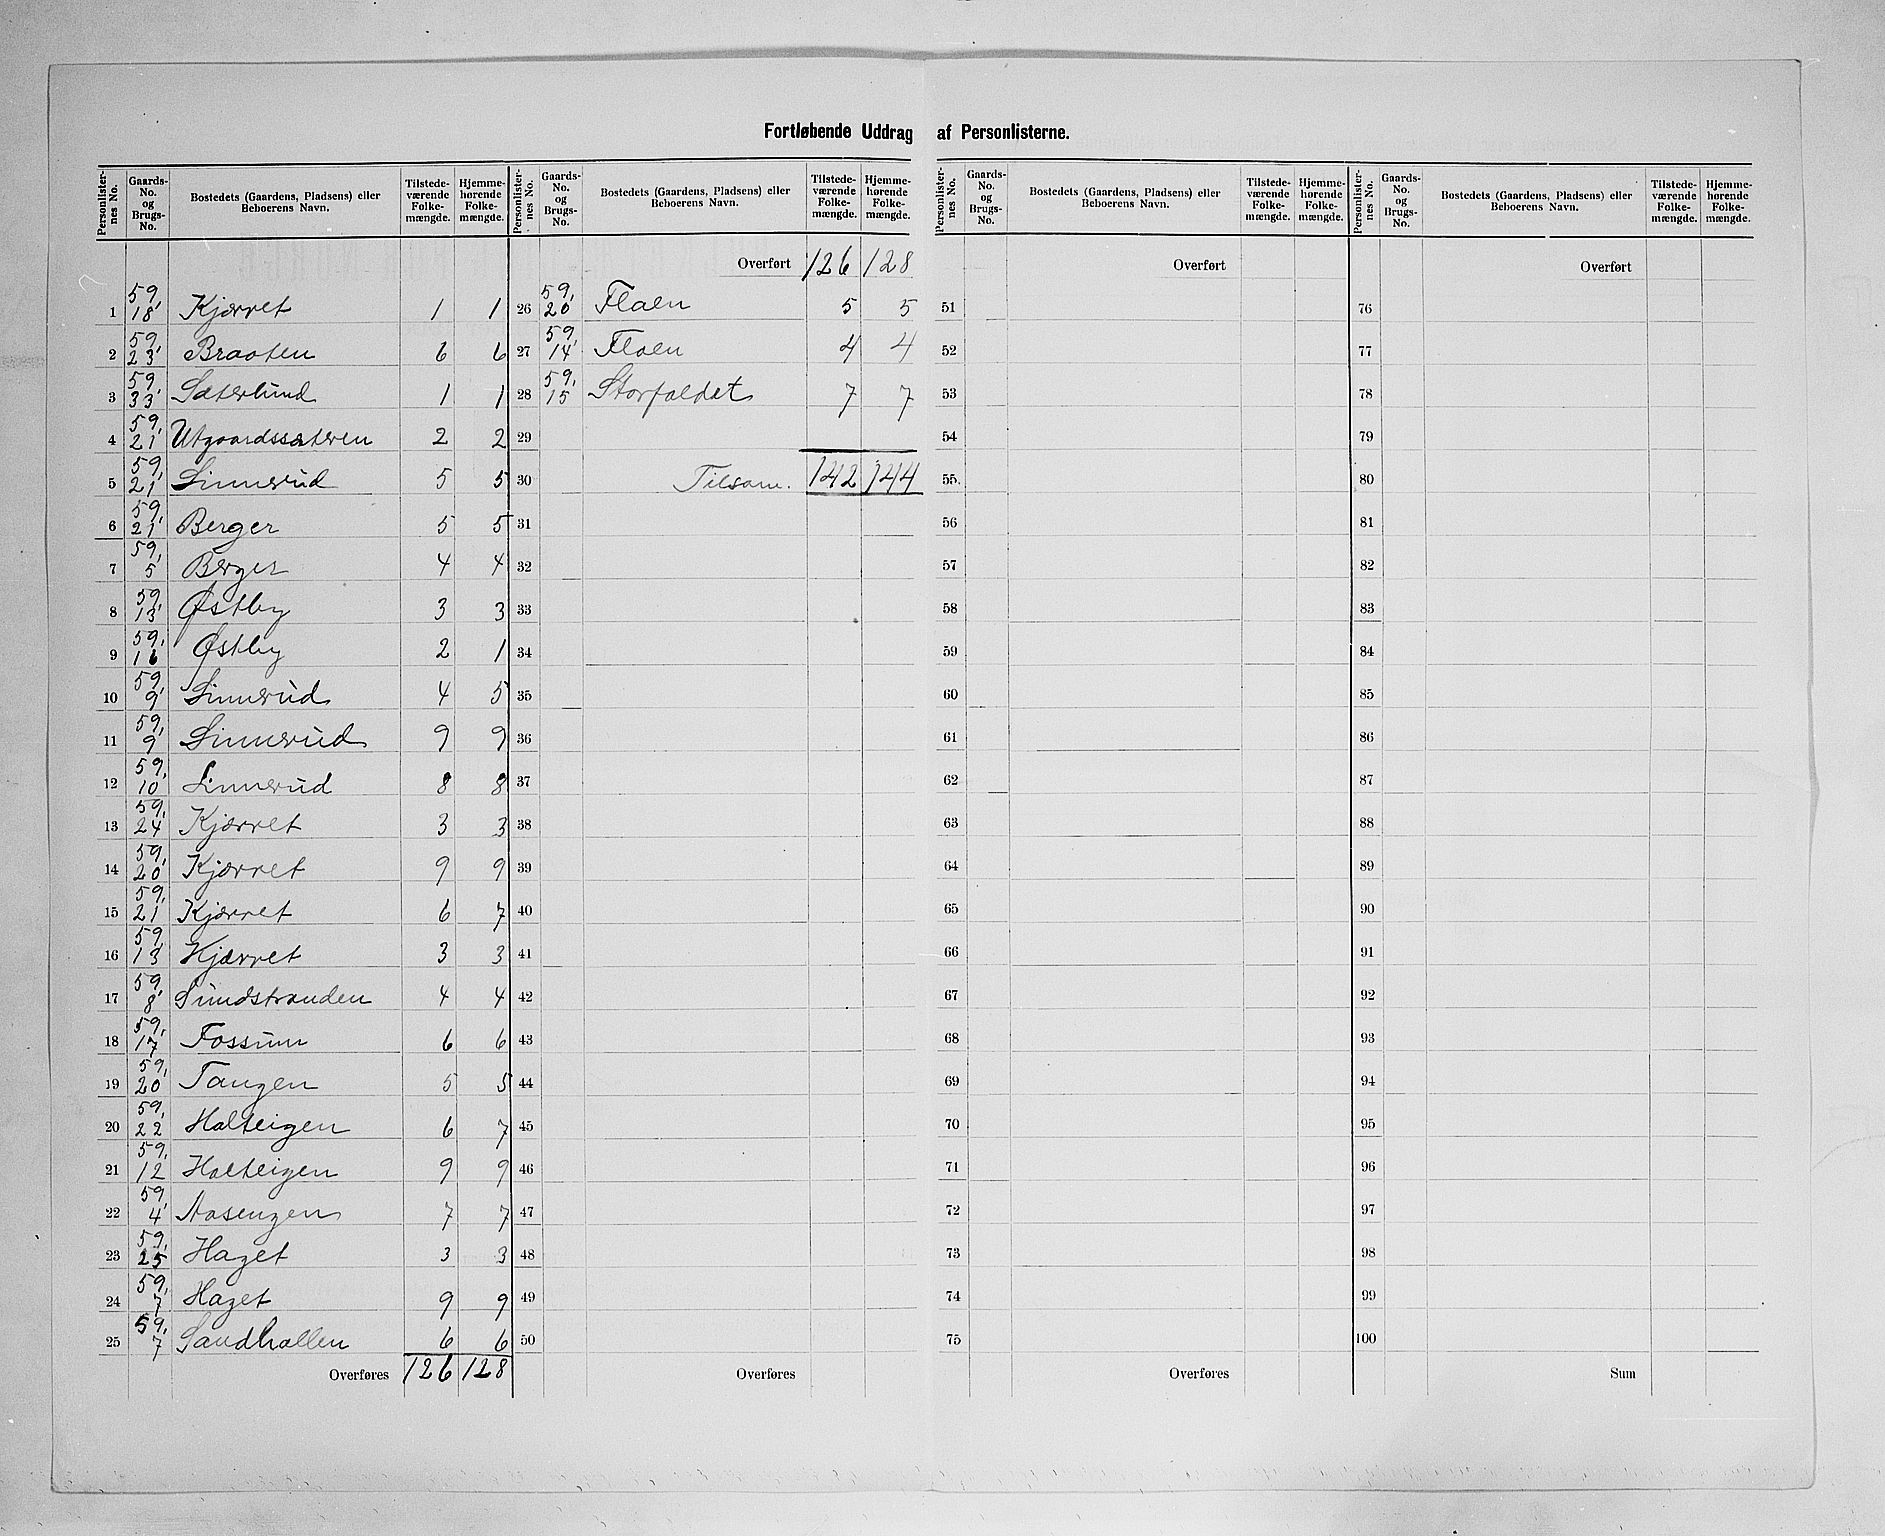 Fortløbende Uddrag af Personlisterne.
Personlister-nes No. | Gaards-No. og Brugs-No. | Bostedets (Gaardens, Pladsens) eller Beboerens Navn. | Tilstede-værende Folke-mængde. | Hjemme-hørende Folke-mængde.
1 59, 18 Kjærret 1 1
2 59, 23 Braaten 6 6
3 59, 33 Sæterlund 1 1
4 59, 21 Utgaardssæteren 2 2
5 59, 21 Linnerud 5 5
6 59, 21 Berger 5 5
7 59, 5 Berger 4 4
8 59, 13 Østby 3 3
9 59, 16 Østby 2 1
10 59, 9 Linnerud 4 5
11 59, 9 Linnerud 9 9
12 59, 10 Linnerud 8 8
13 59, 24 Kjærret 3 3
14 59, 20 Kjærret 9 9
15 59, 21 Kjærret 6 7
16 59, 13 Kjærret 3 3
17 59, 8 Sundstranden 4 4
18 59, 17 Fossum 6 6
19 59, 20 Tangen 5 5
20 59, 22 Halteigen 6 7
21 59, 12 Halteigen 9 9
22 59, 4 Aasengen 7 7
23 59, 25 Haget 3 3
24 59, 7 Haget 9 9
25 59, 7 Sandhallen 6 6
Overføres 126 128
Personlister-nes No. | Gaards-No. og Brugs-No. | Bostedets (Gaardens, Pladsens) eller Beboerens Navn. | Tilstede-værende Folke-mængde. | Hjemme-hørende Folke-mængde.
Overført 126 128
26 59, 20 Floen 5 5
27 59, 14 Floen 4 4
28 59, 15 Storfaldet 7 7
29
30 Tilsam. 142 144
31
32
33
34
35
36
37
38
39
40
41
42
43
44
45
46
47
48
49
50
Overføres
Personlister-nes No. | Gaards-No. og Brugs-No. | Bostedets (Gaardens, Pladsens) eller Beboerens Navn. | Tilstede-værende Folke-mængde. | Hjemme-hørende Folke-mængde.
Overført
51
52
53
54
55
56
57
58
59
60
61
62
63
64
65
66
67
68
69
70
71
72
73
74
75
Overføres
Personlister-nes No. | Gaards-No. og Brugs-No. | Bostedets (Gaardens, Pladsens) eller Beboerens Navn. | Tilstede-værende Folke-mængde. | Hjemme-hørende Folke-mængde.
Overført
76
77
78
79
80
81
82
83
84
85
86
87
88
89
90
91
92
93
94
95
96
97
98
99
100
Sum